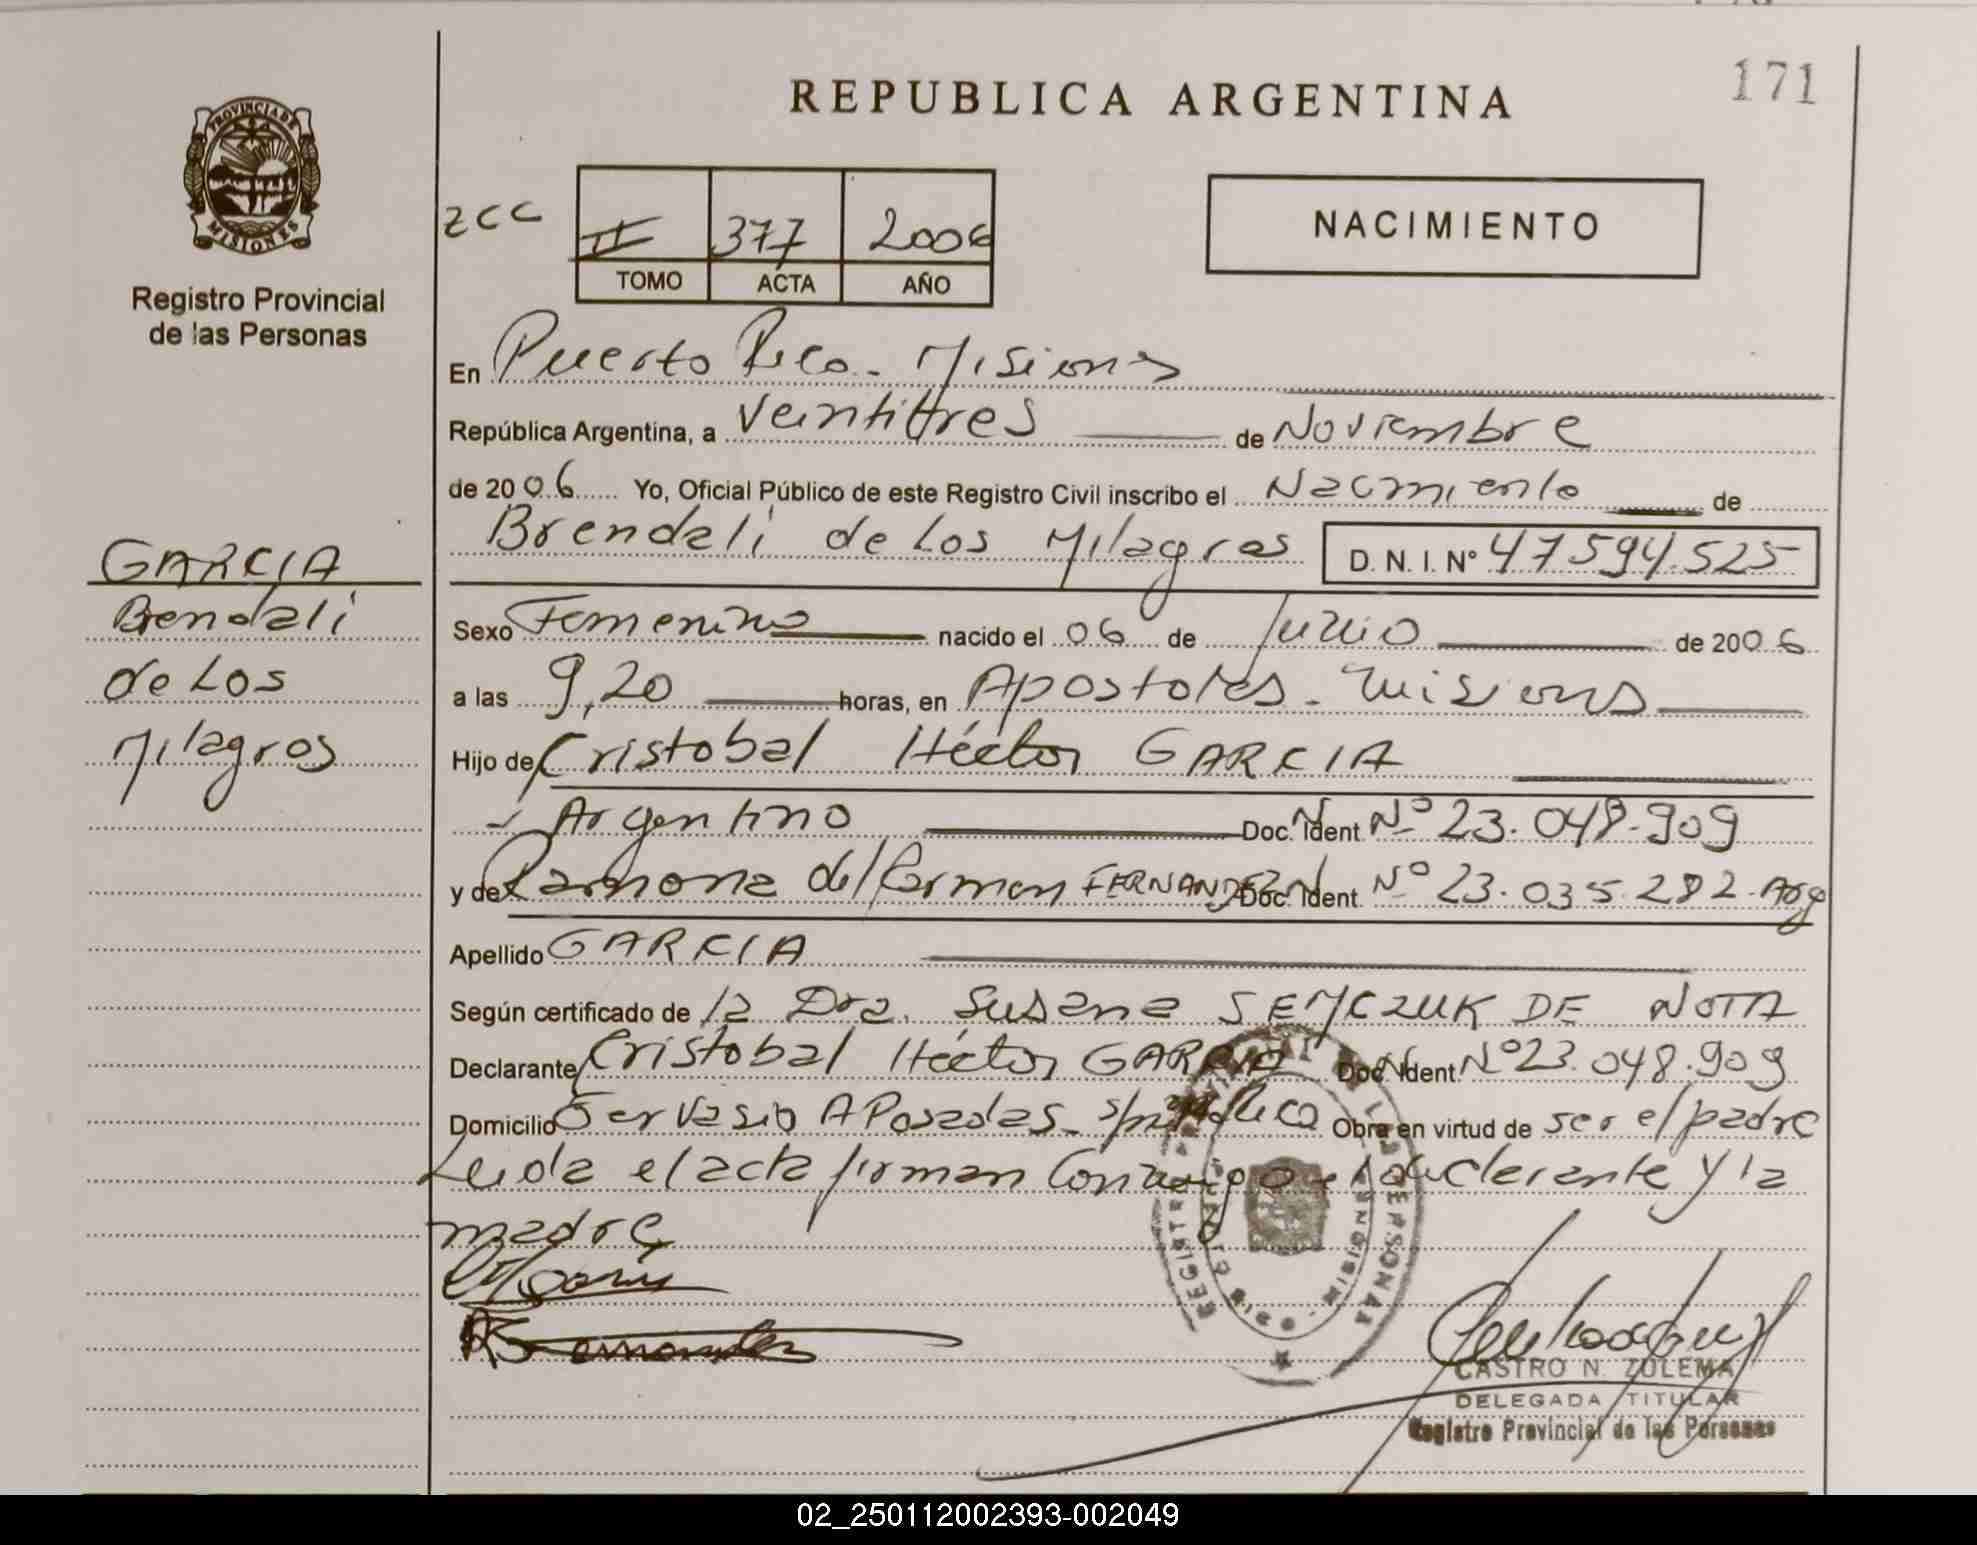 171
REPUBLICA ARGENTINA
PROVINCIA DE
MISIONES
Registro Provincial
de las Personas
zcc
II 377 2006
TOMO ACTA AÑO
NACIMIENTO
En Puerto Rico - Misiones
República Argentina, a Veintitres de Noviembre
de 2006 Yo, Oficial Público de este Registro Civil inscribo el Nacimiento de
Brendali de Los Milagros D. N. I. Nº 47594.525
GARCIA
Brendali
de Los
Milagros
Sexo Femenino nacido el 06 de Junio de 2006
a las 9,20 horas, en Apostoles - Misiones
Hijo de Cristobal Héctor GARCIA
Argentino Doc. N Ident. Nº 23.048.909
y de Ramona del Carmen FERNANDEZ Doc. N Ident. Nº 23.035.282 - Arg
Apellido GARCIA
Según certificado de la Dra. Susana SEMCZUK DE NOTA
Declarante Cristobal Héctor GARCIA Doc N Ident. Nº 23.048.909
Domicilio Gervasio A Posadas - Rico Obra en virtud de ser el padre
Leida el acta firman conmigo el declarante y la
madre
REGISTRO PROVINCIAL DE LAS PERSONAS
MISIONES
CASTRO N. ZULEMA
DELEGADA TITULAR
Registro Provincial de las Personas
02_250112002393-002049